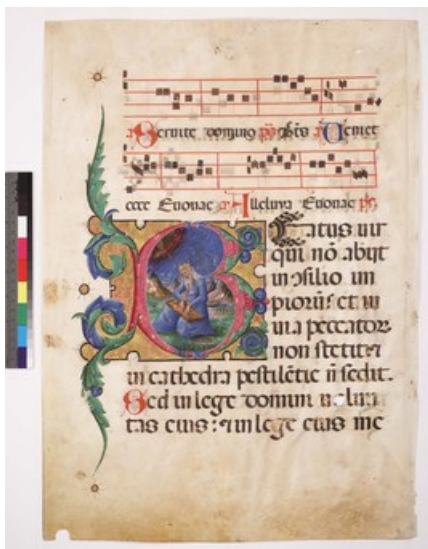 Seruite domino Ueniet
ecce Euouae Alleluya Euouae ps
Beatus uir
qui nō abijt
in ↄsilio im
pioruʒ et in
uia peccatoꝝ
non stetit ⁊
in cathedra pestilētie n̄ sedit.
Sed in lege domini uolun
tas eius: ⁊ in lege eius me